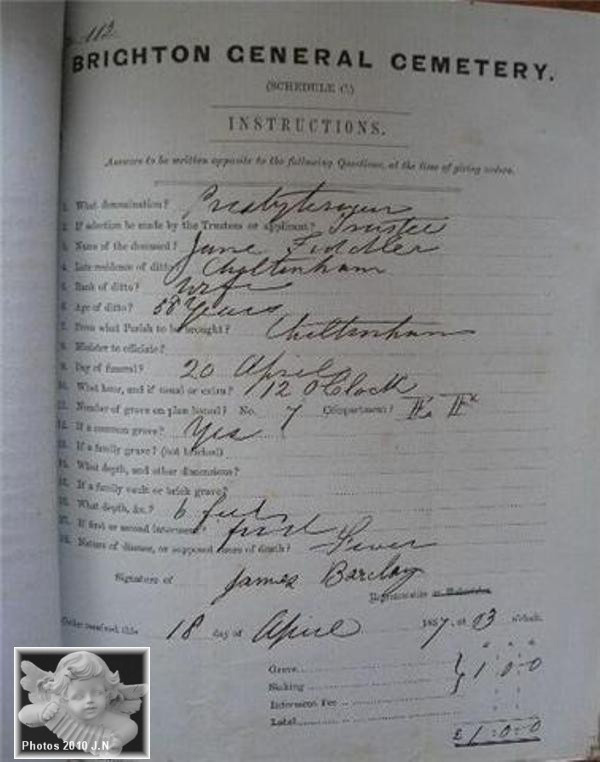 112
BRIGHTON GENERAL CEMETERY.
(SCHEDULE C.)
INSTRUCTIONS.
Answers to be written opposite to the following Questions, at the time of giving orders.
1. What denomination? Presbyterian
2. If selection be made by the Trustees or applicant? Trustee
3. Name of the deceased? Jane Fiddler
4. Late residence of ditto? Cheltenham
5. Rank of ditto? Wife
6. Age of ditto? 58 Years
7. From what Parish to be brought? Cheltenham
8. Minister to officiate?
9. Day of funeral? 20 April
10. What hour, and if usual or extra? 12 O'Clock
11. Number of grave on plan No. 7 Compartment?
12. If a common grave? Yes
13. If a family grave? (not bricked)
14. What depth, and other dimensions?
15. If a family vault or brick grave?
16. What depth, &c.? 6 feet
17. If first or second interment? first
18. Nature of disease, or supposed cause of death? Fever
Signature of James Barclay
Representative or Undertaker
Order received this 18 day of April 1857, at 03 o'clock.
Grave 1.0.0
Sinking
Interment Fee
Total £1.0.0
Photos 2010 J.N